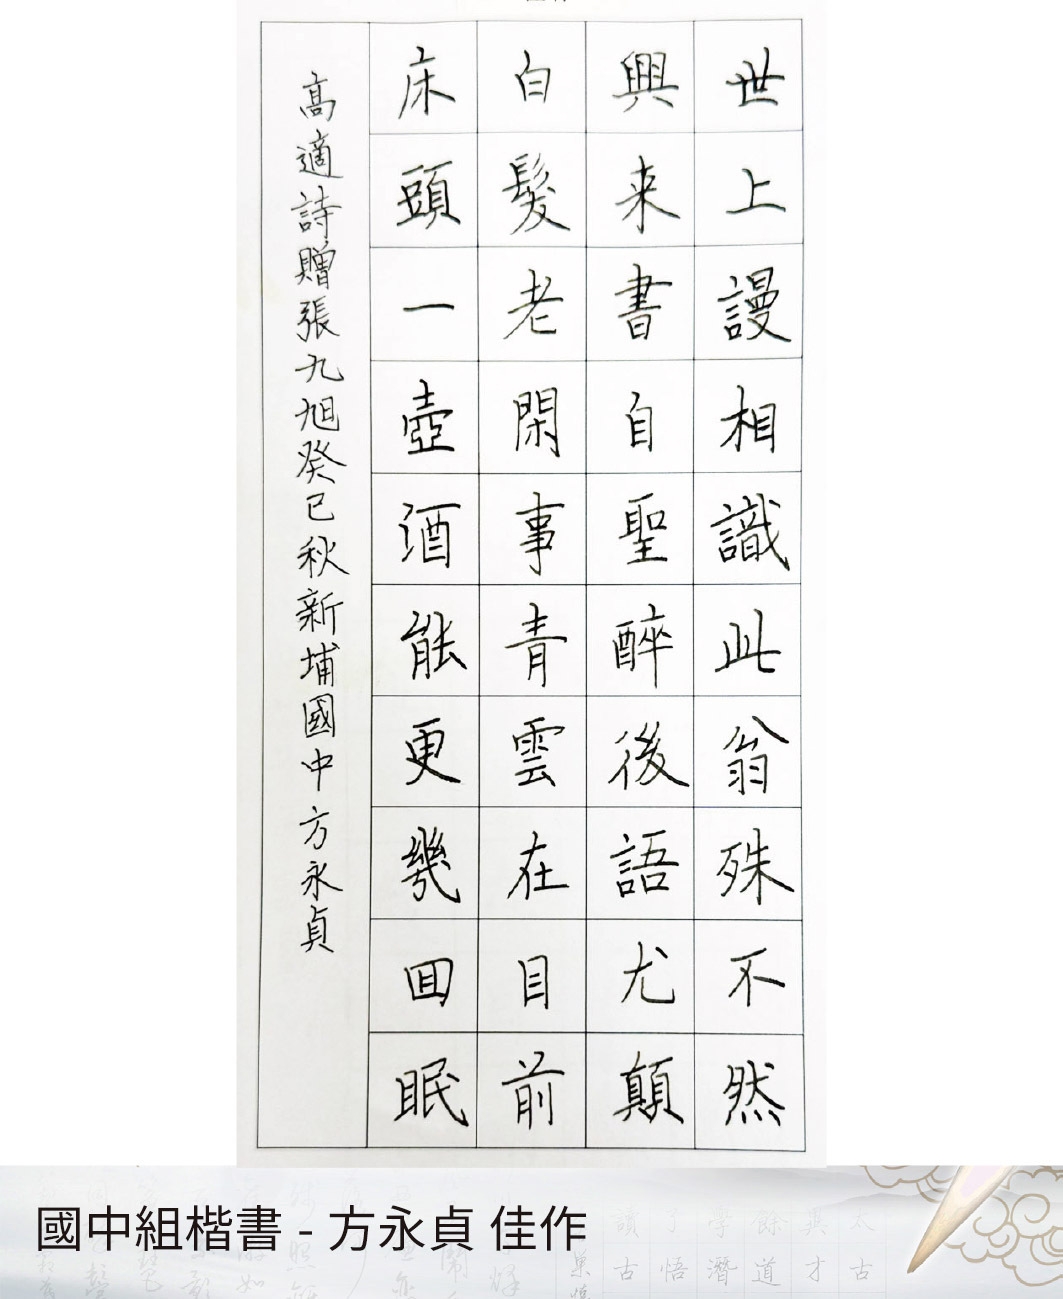 世上謾相識此翁殊不然
興来書自聖醉後語尤顛
白髮老閑事青雲在目前
床頭一壺酒能更幾回眠
高適詩贈張九旭癸巳秋新埔國中方永貞
國中組楷書 - 方永貞 佳作